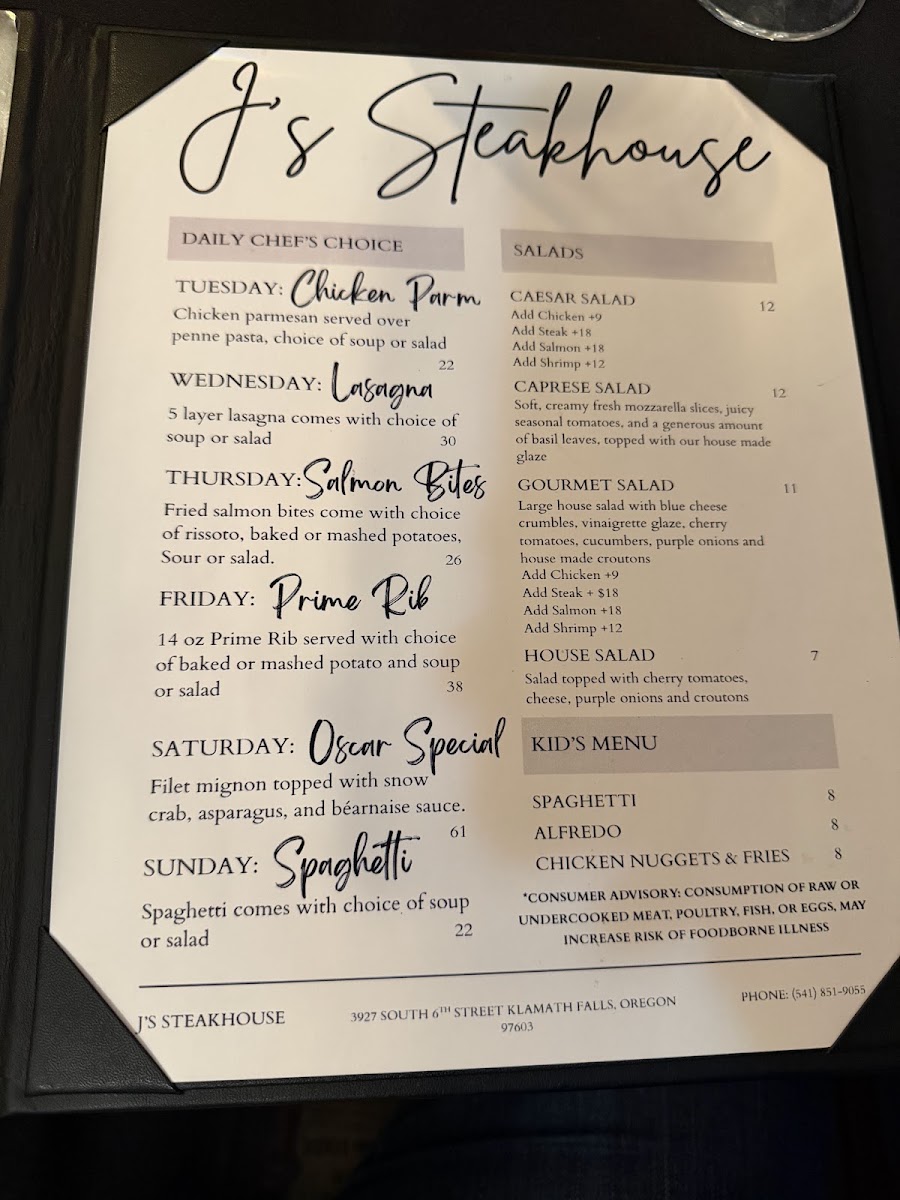 J's Steakhouse
DAILY CHEF'S CHOICE
TUESDAY: Chicken Parm
Chicken parmesan served over
penne pasta, choice of soup or salad
22
WEDNESDAY: Lasagna
5 layer lasagna comes with choice of
soup or salad 30
THURSDAY: Salmon Bites
Fried salmon bites come with choice
of rissoto, baked or mashed potatoes,
Sour or salad. 26
FRIDAY: Prime Rib
14 oz Prime Rib served with choice
of baked or mashed potato and soup
or salad 38
SATURDAY: Oscar Special
Filet mignon topped with snow
crab, asparagus, and béarnaise sauce.
61
SUNDAY: Spaghetti
Spaghetti comes with choice of soup
or salad 22
SALADS
CAESAR SALAD 12
Add Chicken +9
Add Steak +18
Add Salmon +18
Add Shrimp +12
CAPRESE SALAD 12
Soft, creamy fresh mozzarella slices, juicy
seasonal tomatoes, and a generous amount
of basil leaves, topped with our house made
glaze
GOURMET SALAD 11
Large house salad with blue cheese
crumbles, vinaigrette glaze, cherry
tomatoes, cucumbers, purple onions and
house made croutons
Add Chicken +9
Add Steak + $18
Add Salmon +18
Add Shrimp +12
HOUSE SALAD 7
Salad topped with cherry tomatoes,
cheese, purple onions and croutons
KID'S MENU
SPAGHETTI 8
ALFREDO 8
CHICKEN NUGGETS & FRIES 8
*CONSUMER ADVISORY: CONSUMPTION OF RAW OR
UNDERCOOKED MEAT, POULTRY, FISH, OR EGGS, MAY
INCREASE RISK OF FOODBORNE ILLNESS
J'S STEAKHOUSE
3927 SOUTH 6TH STREET KLAMATH FALLS, OREGON
97603
PHONE: (541) 851-9055